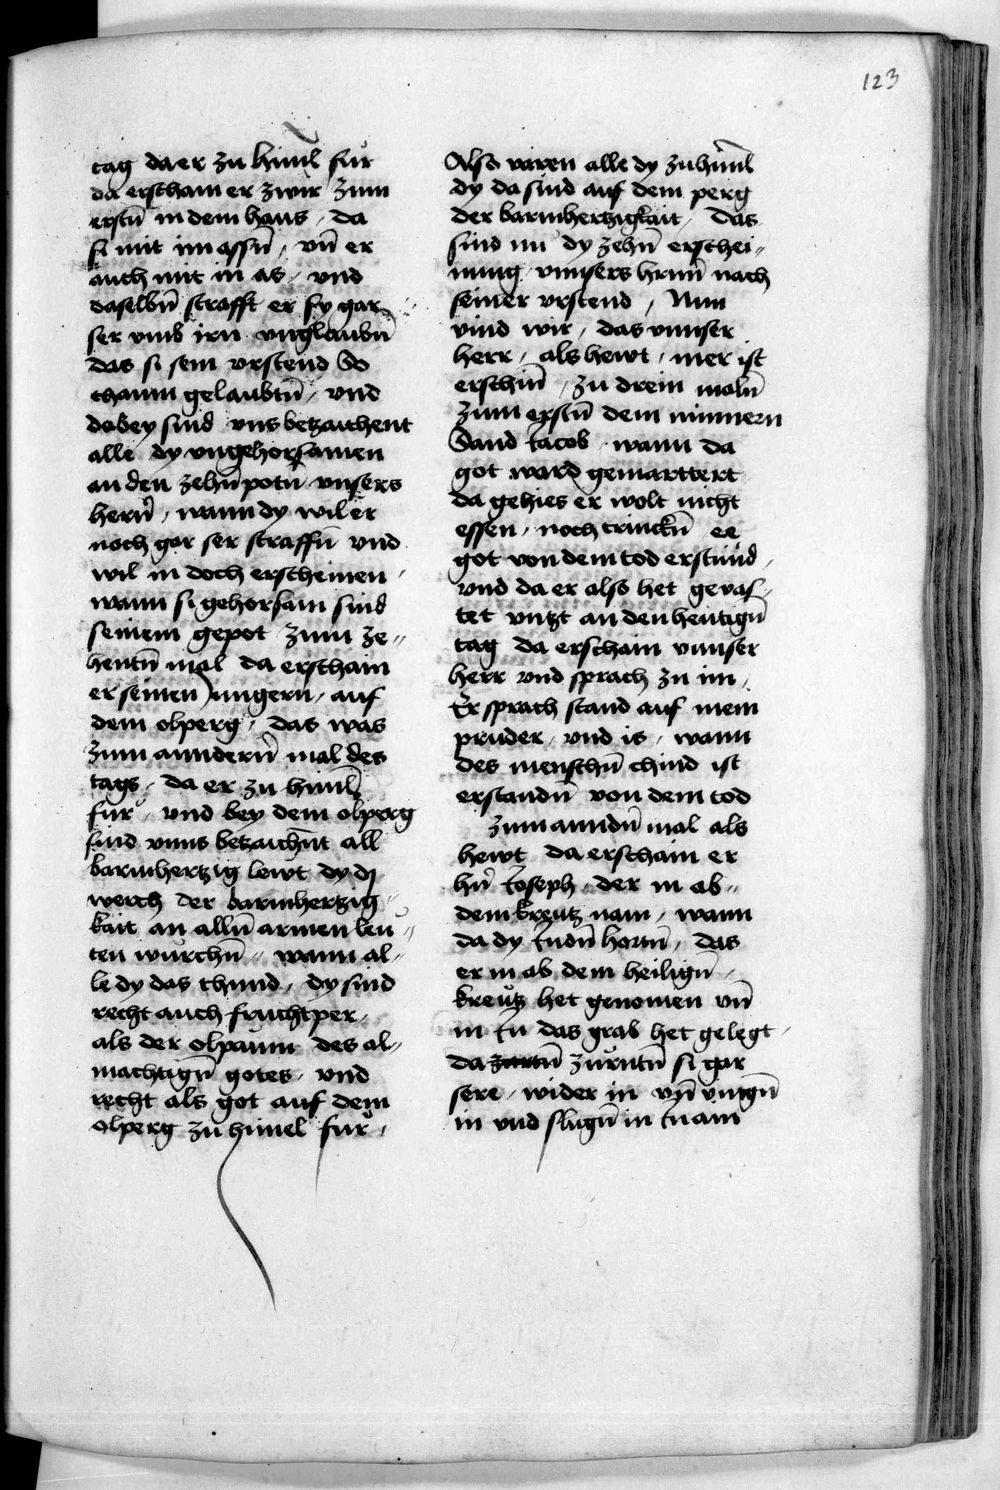 123
tag da er zu himl fůr
da erscham er zwir zum
erstn̄ in dem haus / da
si mit im assn̄ / vn̄ er
auch mit in as / vnd
daselbn̄ strafft er sy gar
ser vmb irn vnglaubn̄
das si sein vrstend so
chaum gelaubtn̄ / vnd
dabey sind vns betzaichent
alle dy vngehorsamen
an den zehn̄ potn̄ vnsers
hern̄ / wann dy wil er
noch gar ser straffn̄ vnd
wil in doch erscheinen /
wann si gehorsam sind
seinem gepot zum ze-
hentn̄ mal da erschain
er seinen Jungern / auf
dem olperg / das was
zum anndern̄ mal des
tags / da er zu himl
fůr / vnd bey dem olperg
sind vnns betzaichn̄t all
barmhertzig lewt dy di
werch der barmhertzig
kait an alln̄ armen leu-
ten wurchn̄ / wann al-
le dy das thund / dy sind
recht auch fruchtper /
als der olpaum des al-
machtign̄ gotes / vnd
recht als got auf dem
olperg zu himel fůr /
Also varen alle dy zu himl
dy da sind auf dem perg
der barmhertzigkait / das
sind nu dy zehn̄ erschei-
nung vnnsers hrnn̄ nach
seiner vrstend / Nun
vind wir / das vnnser
herr / als hewt / mer ist
erschin̄ / zu drein maln̄
zum erstn̄ dem minnern
Sand Jacob / wann da
got ward gemarttert
da gehies er wolt nicht
essen / noch trinckn̄ ee
got von dem tod erstund /
vnd da er also het gevas-
tet vntzt an den heutign̄
tag da erschain vnnser
herr vnd sprach zu im /
Er sprach stand auf mein
pruder / vnd is / wann
des menschn̄ chind ist
erstandn̄ von dem tod
zum anndn̄ mal als
hewt da erschain er
hn̄ Joseph / der in ab-
dem kreutz nam / wann
da dy Judn̄ hortn̄ / das
er in ab dem heilign̄ /
kreutz het genomen vn̄
in Jn̄ das grab het gelegt /
da zurntn̄ si gar
sere / wider in vn̄ viengn̄
in vnd slugn̄ in Jn ain